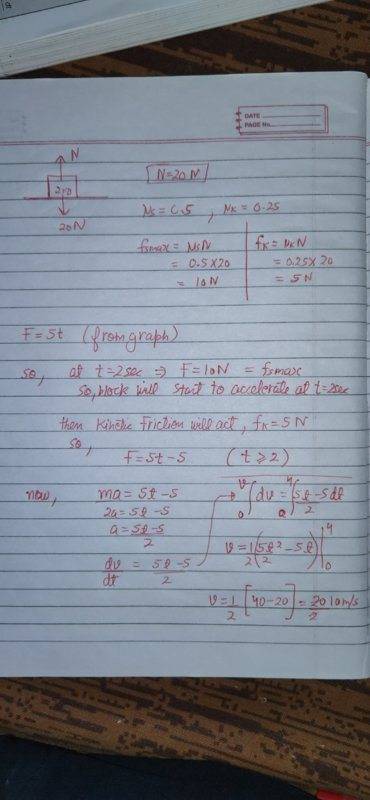 DATE
PAGE No.
N
N=20N
2kg
20N
μs = 0.5 , μk = 0.25
fsmax = μsN
= 0.5 × 20
= 10N
fk = μkN
= 0.25 × 20
= 5N
F = 5t (from graph)
so, at t=2sec ⇒ F=10N = fsmax
so, block will start to accelerate at t=2sec
then kinetic friction will act, fk = 5N
so,
F = 5t - 5 (t ≥ 2)
now, ma = 5t - 5
2a = 5t - 5
a = (5t - 5)/2
dv/dt = (5t - 5)/2
∫₀ᵛ dv = ∫₀⁴ (5t - 5 dt)/2
v = 1/2 (5t²/2 - 5t) |₀⁴
v = 1/2 [40 - 20] = 20/2 10m/s